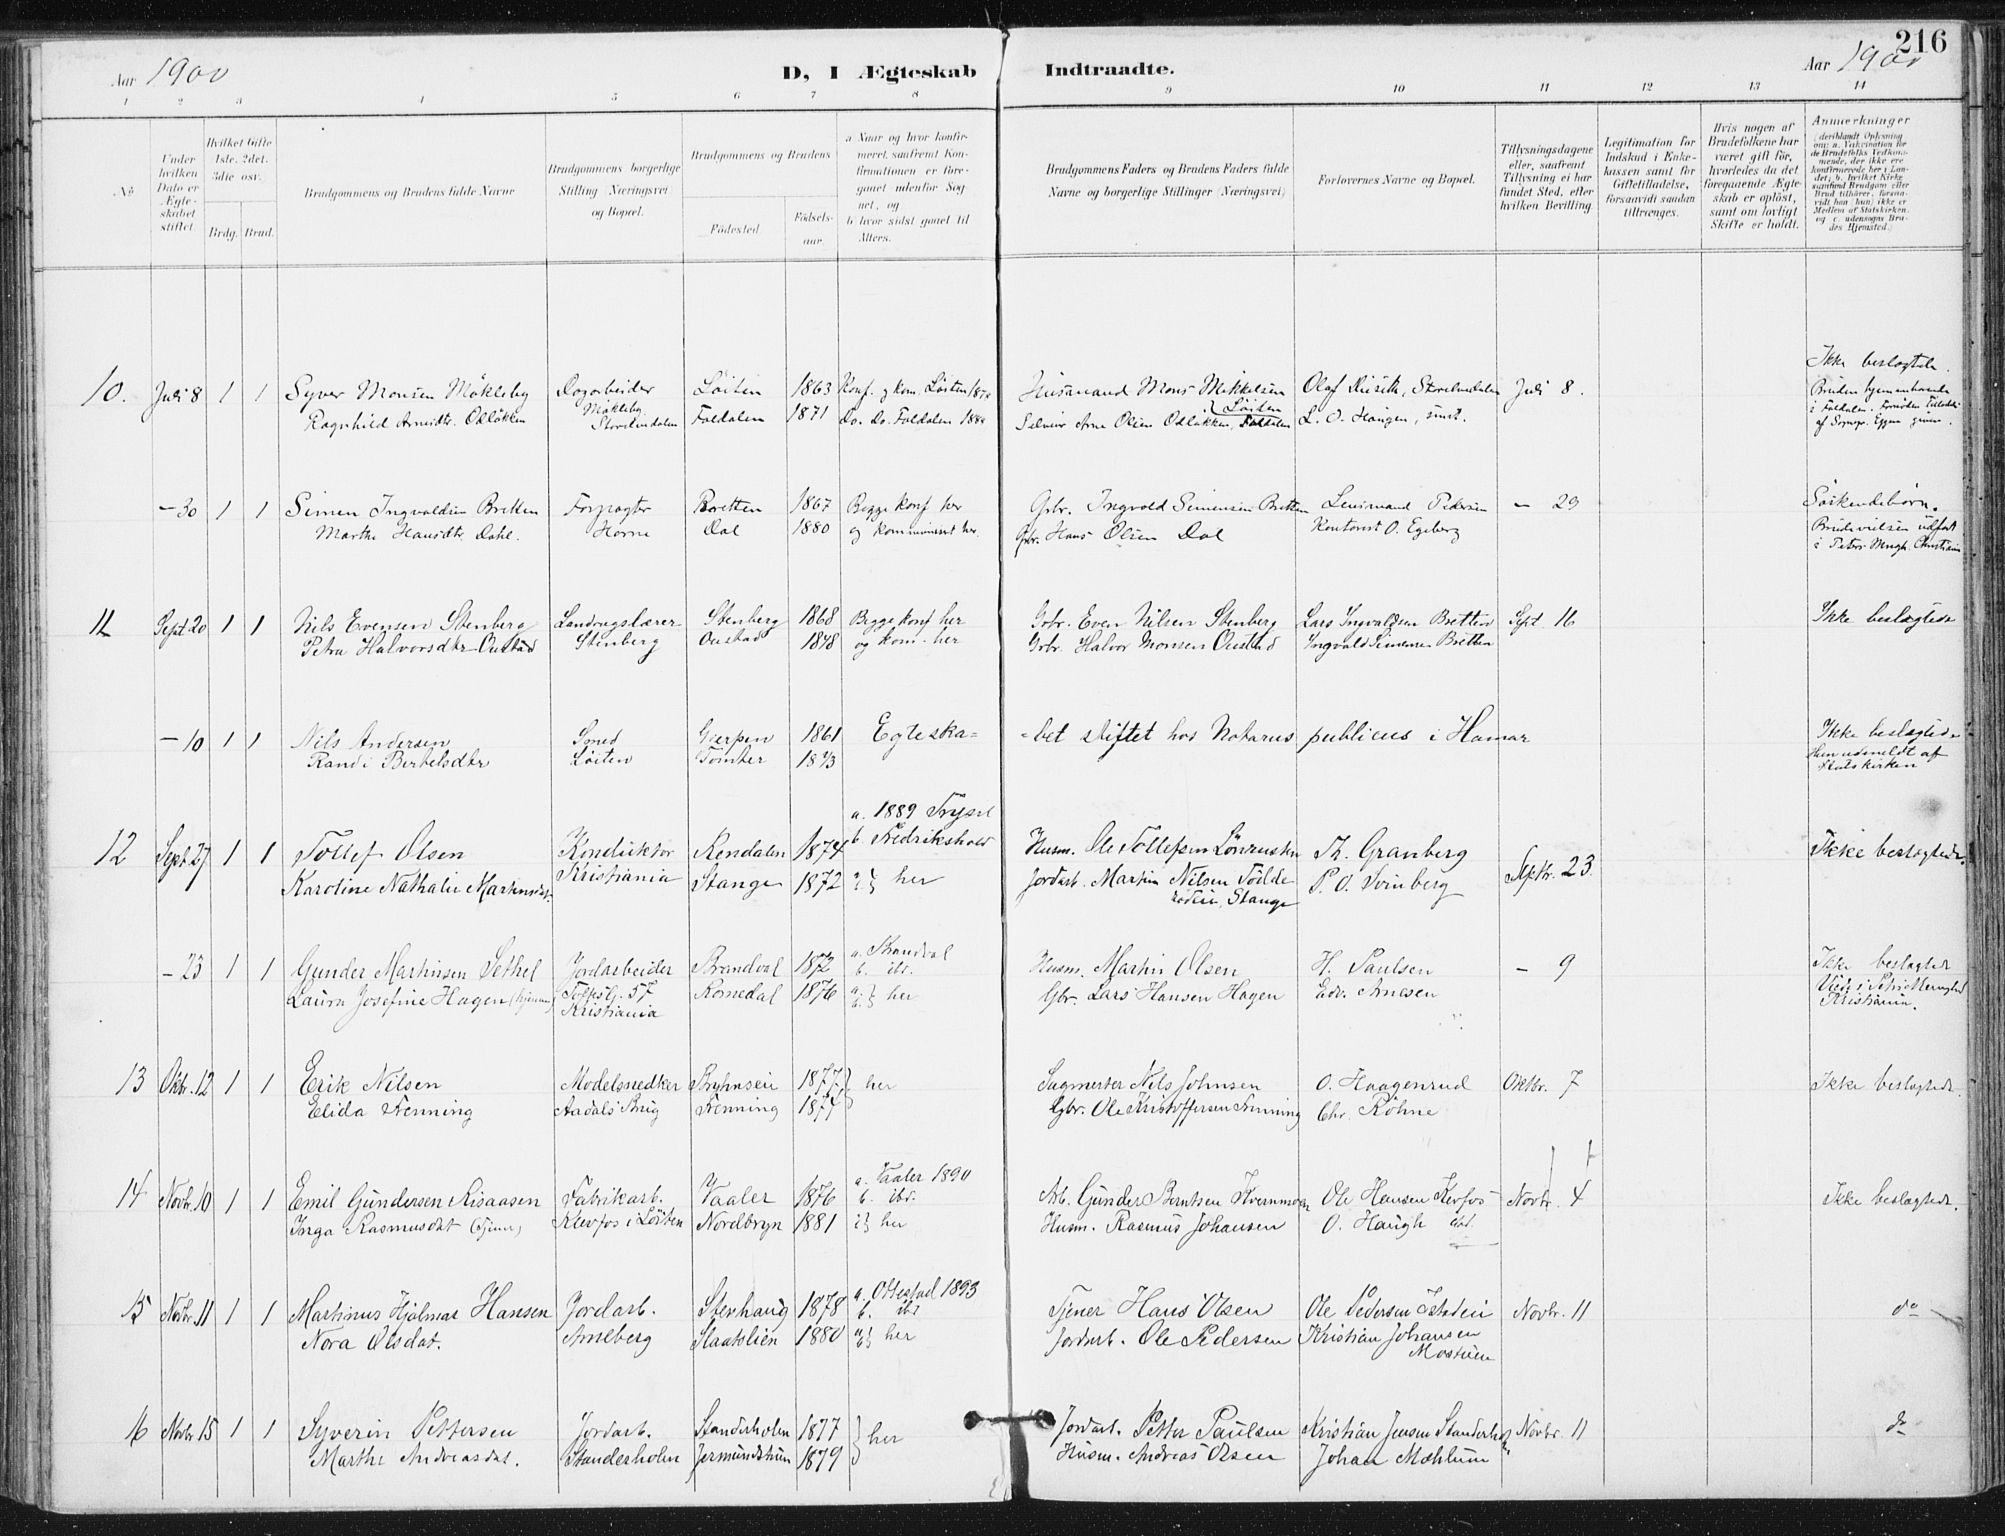 216
Aar 1900
D, I Ægteskab Indtraadte.
Aar 1900
1 2 3 4 5 6 7 8 9 10 11 12 13 14
No
Under hvilken Dato er Ægteskabet stiftet
Hvilket Gifte 1ste, 2det, 3die osv.
Brdg. Brud.
Brudgommens og Brudens fulde Navne
Brudgommens borgerlige Stilling (Næringsvei) og Bopæl.
Brudgommens og Brudens
Födested
Födselsaar.
a Naar og hvor konfirmeret, saafremt Konfirmationen er foregaaet udenfor Sognet, og
b hvor sidst gaaet til Alters.
Brudgommens Faders og Brudens Faders fulde Navne og borgerlige Stillinger (Næringsvei)
Forlovernes Navne og Bopæl.
Tillysningsdagene eller, saafremt Tillysning ei har fundet Sted, efter hvilken Bevilling.
Legitimation for Indskud i Enkekassen samt for Giftetilladelse, forsaavidt saadan tiltrænges.
Hvis nogen af Brudefolkene har været gift för, hvorledes da det foregaaende Ægteskab er oplöst, samt om lovligt Skifte er holdt.
Anmærkninger
10. Juli 8 1 1 Syver Monsen Mökleby Dagarbeider Löiten 1863 Konf. og kom. Löiten 1878 Husmand Mons Mikkelsen Olaf Juli 8. Ikke beslægtede.
Ragnhild Arnesdtr. Odlökken Mökleby Storelvdalen Foldalen 1871 Do. Do. Foldalen Arne Olsen Odlökken, Foldalen L. O. Haugen, smst.
Löiten
– 30 1 1 Simen Ingvaldsen Bretten Forpagter Bretten 1867 Begge konf her Grbr. Ingvald Simensen Bretten Lensmand Pedersen – 29 Söskendebörn.
Marthe Hansdtr. Dahl. Horne Dal 1880 og kommuniceret her. Gbr. Hans Olsen Dal Kontorist O. Egeberg
11 Sept 20 1 1 Nils Evensen Stenberg Landbrugslærer Stenberg 1868 Begge konf her Grbr. Even Nilsen Stenberg Lars Ingvaldsen Bretten Sept 16 Ikke beslægtede
Petra Halvorsdtr Oustad Stenberg Oustad 1878 og kom. her Grbr. Halvor Monsen Oustad Ingvald Simensen Bretten
– 10 1 1 Nils Andersen Smed Gjerpen 1861 Egteska= =bet stiftet hos Notarius publicus i Hamar Ikke beslægtede
Randi Bertelsdtr Löiten Tomter 1873 Hun udmeldt af Statskirken
a. 1889 Trysil
12 Sept. 27 1 1 Tollef Olsen Konduktör Rendalen 1874 b. Fredrikshald Husm. Ole Tollefsen Th. Granberg Septbr. 23 Ikke beslægtede.
Karoline Nathalie Martinsdat. Kristiania Stange 1872 her Jordarb. Martin Nilsen P. O. Svinberg
Stange
– 23 1 1 Gunder Martinsen Sethel Jordarbeider Brandval 1872 a. Brandval b. ibd. Husm. Martin Olsen H. Paulsen – 9 Ikke beslægtede
Laura Josefine Hagen (tjener) 57 Romedal 1876 her Gbr. Lars Hansen Hagen Edv. Arnesen
Kristiania Kristiania.
13 Oktbr. 12 1 1 Erik Nilsen Modelsnedker Bryhnseie 1877 her Sagmester Nils Johnsen O. Haagenrud Oktbr. 7 Ikke beslægtede
Elida Fenning Aadals Brug Fenning 1877 Gbr. Ole Kristoffersen Fenning Chr. Röhne
14 Novbr. 10 1 1 Emil Gundersen Risaasen Fabrikarb. Vaaler 1876 a. Vaaler 1890 b. ibd. Arb. Gunder Berntsen Kvernmoen Ole Hansen Klevfos Novbr. 4 Ikke beslægtede.
Inga Rasmusdat (tjener) Klevfos i Löiten Nordbryn 1881 her Husm. Rasmus Johansen O. Haugh ibd.
15 Novbr. 11 1 1 Martinus Hjalmar Hansen Jordarb. Stenhaug 1878 a. Ottestad 1893 b. ibd Tjener Hans Olsen Ole Pedersen Novbr. 11 do
Nora Olsdat. Arneberg Slaatslien 1880 her Jordarb. Ole Pedersen Kristian Johansen Mostuen
16 Novbr. 15 1 1 Syverin Pettersen Jordarb. Standerholen 1877 her Jordarb. Petter Paulsen Kristian Jensen Standerholen Novbr. 11 do
Marthe Andreasdat. Standerholen Jermundstuen 1879 Husm. Andreas Olsen Johan Mæhlum